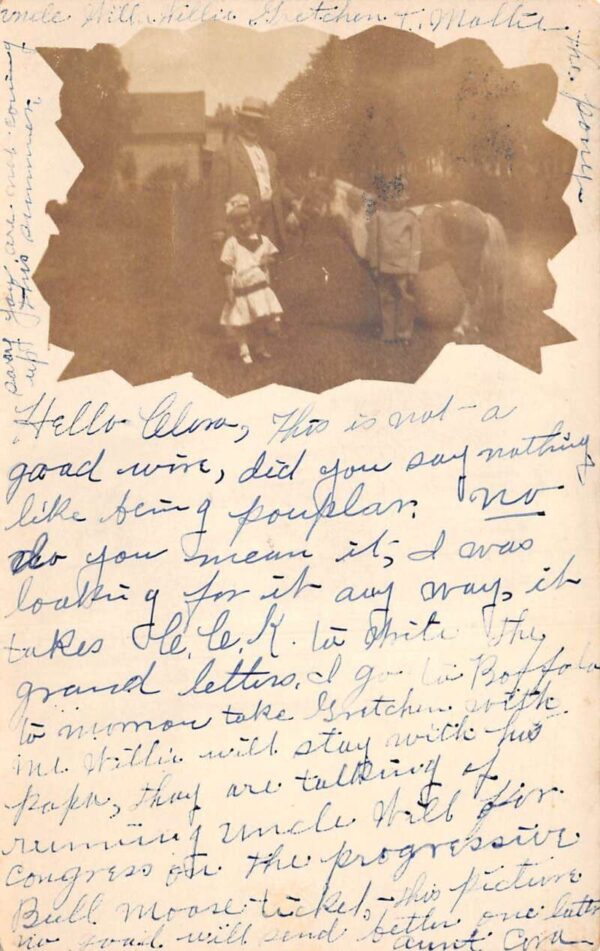 Uncle Will Willie Gretchen & Mollie
the pony
sorry you are not coming
up this summer.
Hello Clora, This is not a
good wire, did you say nothing
like being pouplar. No
do you mean it, I was
looking for it any way, it
takes C.C.K. to write the
grand letters. I go to Boffalo
to morrow take Gretchen with
me. Willie will stay with his
papa, thay are talking of
running Uncle Will for
congress on the progressive
Bull moose ticket, this picture
no good will send better one later
Aunt Cora